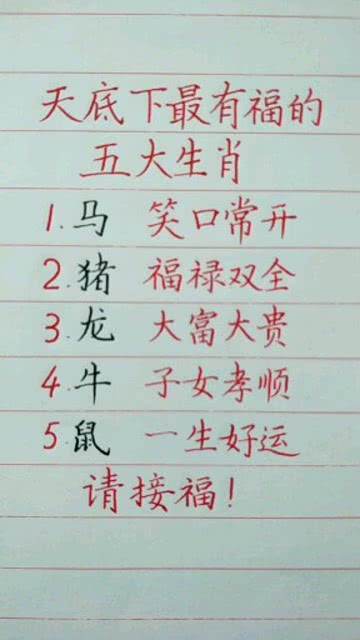 天底下最有福的
五大生肖
1.马 笑口常开
2.猪 福禄双全
3.龙 大富大贵
4.牛 子女孝顺
5.鼠 一生好运
请接福!